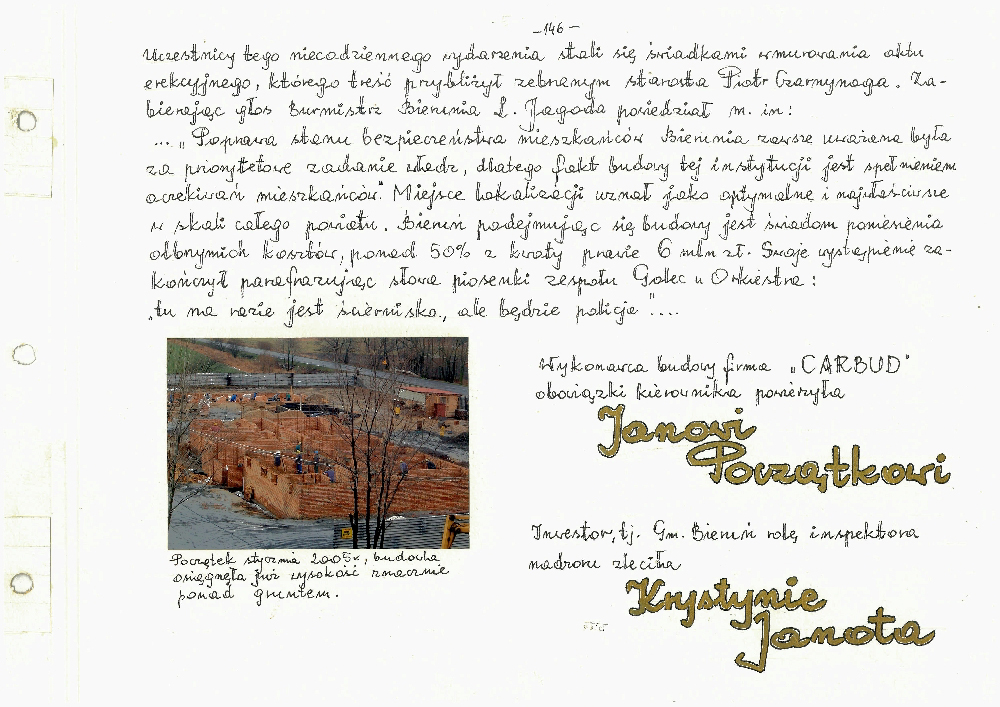 -146-
Uczestnicy tego niecodziennego wydarzenia stali się świadkami wmurowania aktu
erekcyjnego, którego treść przybliżył zebranym starosta Piotr Czarnynoga. Za-
bierając głos Burmistrz Bierunia L. Jagoda powiedział m. in:
..." Poprawa stanu bezpieczeństwa mieszkańców Bierunia zawsze uważana była
za priorytetowe zadanie władz, dlatego fakt budowy tej instytucji jest spełnieniem
oczekiwań mieszkańców". Miejsce lokalizacji uznał jako optymalne i najwłaściwsze
w skali całego powiatu. Bieruń podejmując się budowy jest świadom poniesienia
olbrzymich kosztów, ponad 50% z kwoty prawie 6 mln zł. Swoje wystąpienie za-
kończył parafrazując słowa piosenki zespołu Golec u Orkiestra:
„tu na razie jest ściernisko, ale będzie policja"....
Wykonawca budowy firma „CARBUD"
obowiązki kierownika powierzyła
Janowi
Początkowi
Początek stycznia 2005r, budowla
osiągnęła już wysokość znacznie
ponad gruntem.
Inwestor, tj. Gm. Bieruń rolę inspektora
nadzoru zleciła
Krystynie
Janota